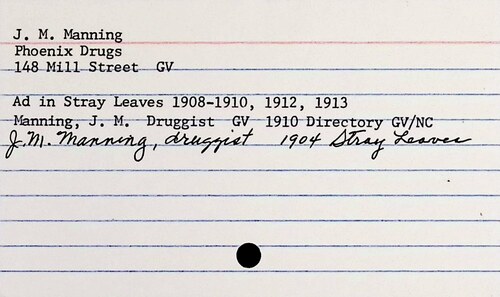 J. M. Manning
Phoenix Drugs
148 Mill Street GV
Ad in Stray Leaves 1908-1910, 1912, 1913
Manning, J. M. Druggist GV 1910 Directory GV/NC
J.M. Manning, druggist 1904 Stray Leaves